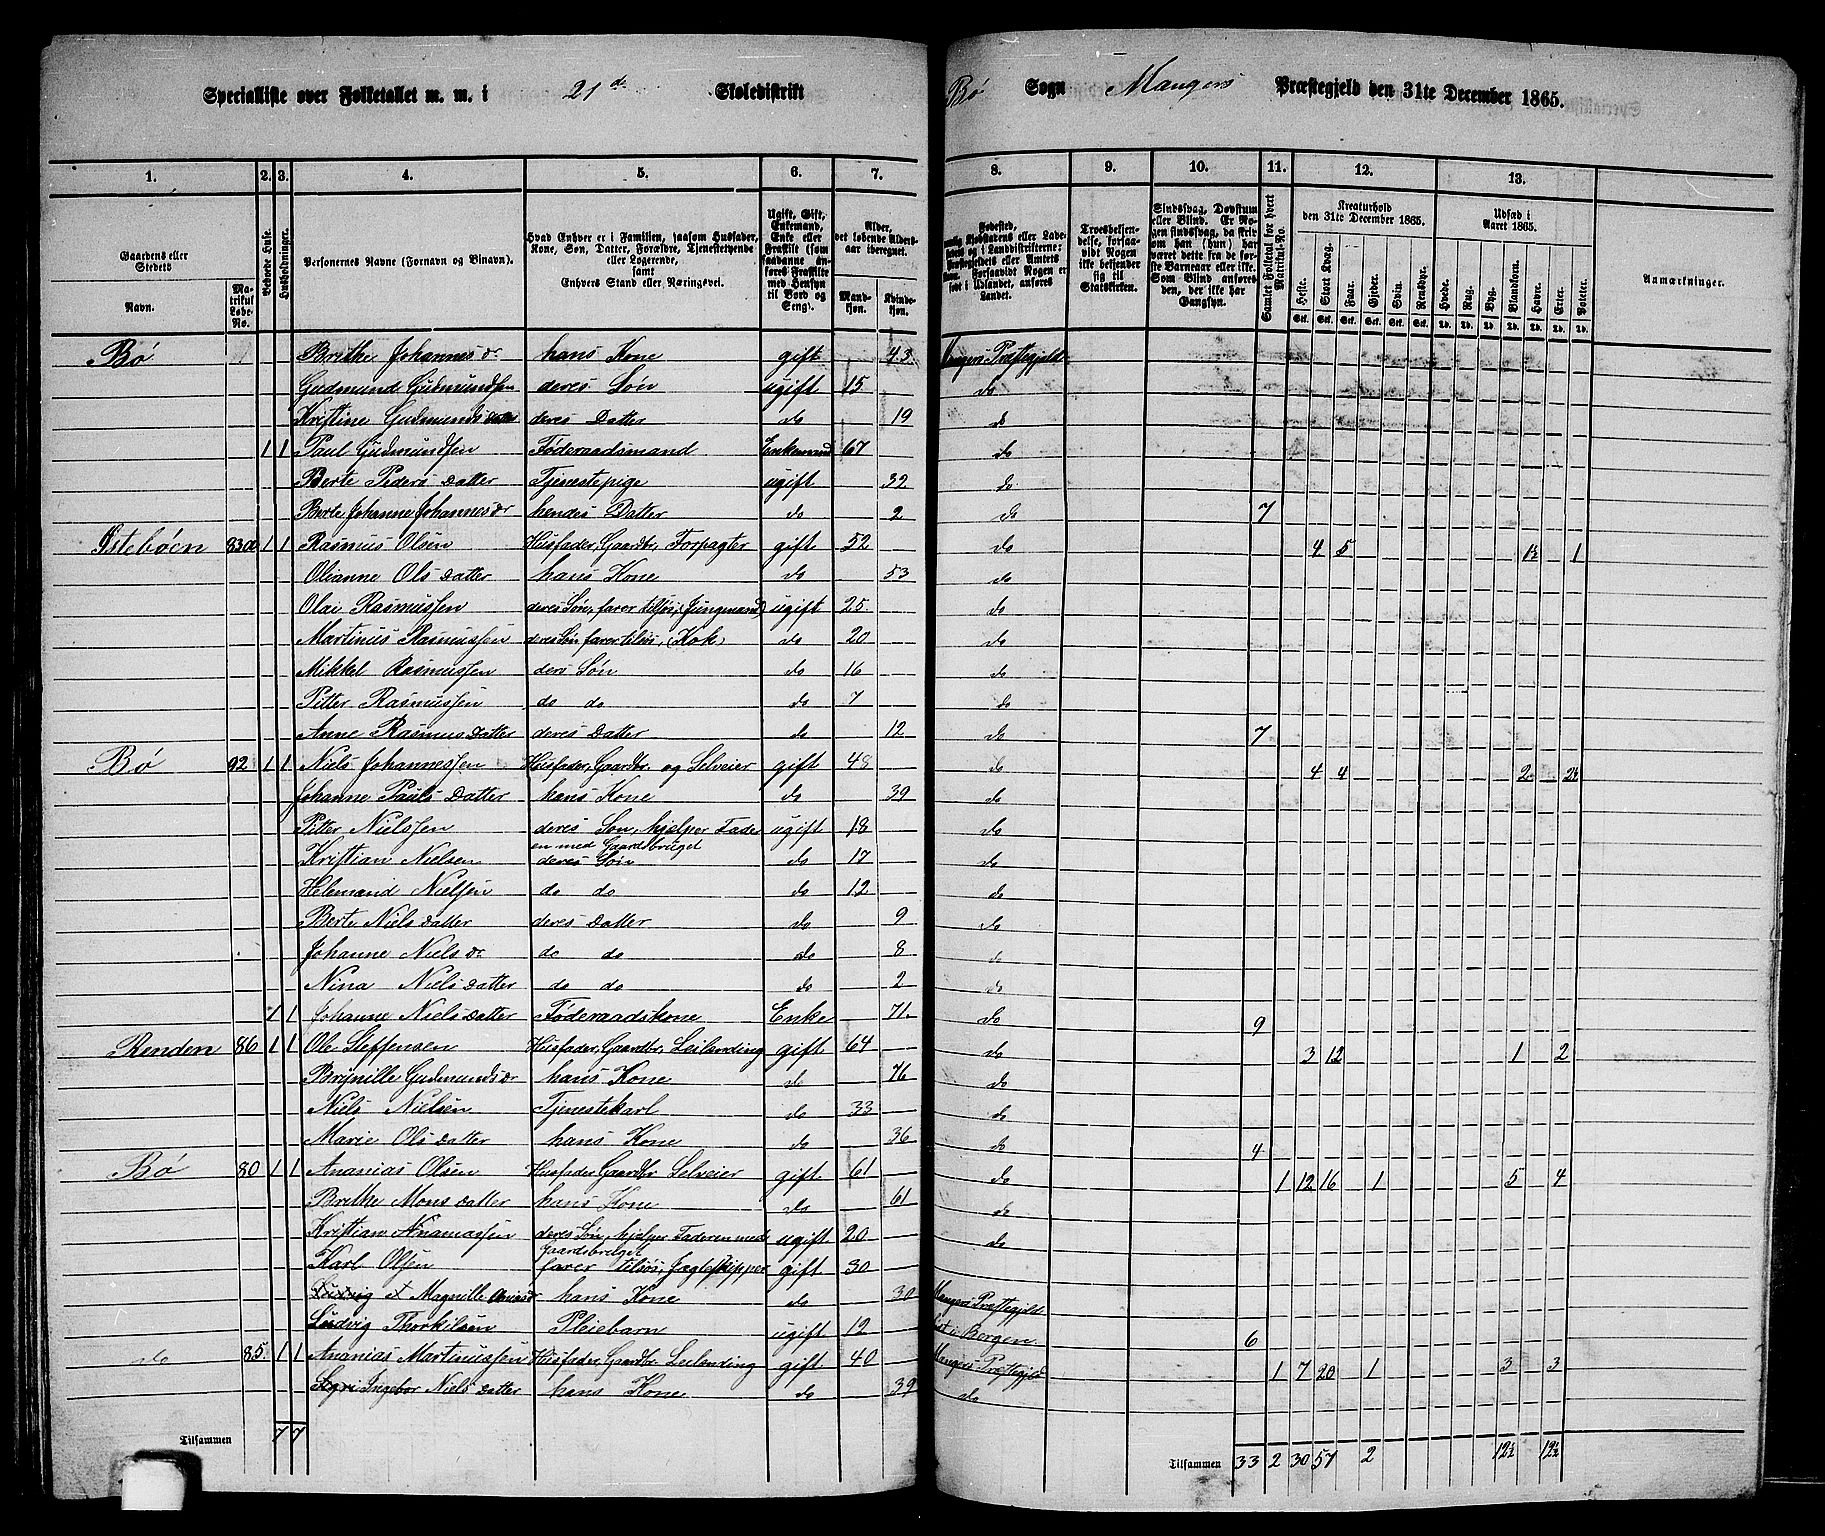 Specialliste over Folketallet m. m. i 21de Skoledistrikt
Bø Sogn Mangers Præstegjeld den 31te December 1865.
1. 2. 3. 4. 5. 6. 7.
8. 9. 10. 11. 12. 13.
Gaardenes eller Stedets Navn. Matrikul Løbe-No. Beboede Huse. Husholdninger. Personernes Navne (Fornavn og Binavn). Hvad Enhver er i Familien, saasom Husfader, Kone, Søn, Datter, Forældre, Tjenestetyende eller Logerende, samt Enhvers Stand eller Næringsvei. Ugift, Gift, Enkemand, Enke eller Fraskilt (som saadanne anføres Fraskilte med Hensyn til Bord og Seng). Alder, det løbende Alders-aar iberegnet. Mandkjøn. Kvindekjøn.
Troesbekjendelse, forsaavidt Nogen ikke bekjender sig til Statskirken. Sindssvag, Døvstum eller Blind. Samlet Folketal for hvert Matrikul-No. Kreaturhold den 31te December 1865. Heste. Stort Kvæg. Faar. Gjeder. Svin. Rensdyr. Udsæd i Aaret 1865. Hvede. Rug. Byg. Blandkorn. Havre. Erter. Poteter. Anmærkninger.
Bø Brithe Johannesdr hans Kone gift 43 Mangers Præstegjeld
Gudmund Gudmundsen deres Søn ugift 15 do
Kristine Gudmundsdatter deres Datter do 19 do
1 1 Paul Gudmundsen Føderaadsmand Enkemand 67 do
Berte Pedersdatter Tjenestepige ugift 32 do
Berte Johanne Johannesdr hendes Datter do 2 do 7
Østebøen 83a 1 1 Rasmus Olsen Husfader, Gaardbr, Forpagter gift 52 do 4 5 1½ 1
Olianne Olsdatter hans Kone do 53 do
Olai Rasmussen deres Søn, farer tilsøs, (Jungmand) ugift 25 do
Martinus Rasmussen deres Søn farer tilsøs, (Kok) do 20 do
Mikkel Rasmussen ders Søn do 16 do
Pitter Rasmussen do do do 7 do
Anne Rasmusdatter deres Datter do 12 do 7
Bø 92 1 1 Niels Johannessen Husfader, Gaardbr. og Selveier gift 48 do 4 4 2 2½
Johanne Paulsdatter hans Kone do 39 do
Pitter Nielssen deres Søn, hjelper Fader ugift 18 do
en med Gaardsbruget
Kristian Nielsen deres Søn do 17 do
Helmand Nielsen do do do 12 do
Berte Nielsdatter deres Datter do 9 do
Johanne Nielsdr do do do 8 do
Nina Nielsdatter do do do 2 do
1 1 Johanne Nielsdatter Føderaadskone Enke 71 do 9
Renden 86 1 1 Ole Steffensen Husfader, Gaardbr, Leilænding gift 64 do 3 12 1 2
Brynille Gudmundsdr hans Kone do 76 do
Niels Nielsen Tjenestekarl do 33 do
Marie Olsdatter hans Kone do 36 do 4
Bø 80 1 1 Ananias Olsen Husfader Gaardbr Selveier gift 61 do 1 12 16 1 5 4
Brithe Monsdatter hans Kone do 61 do
Kristian Ananiassen deres Søn, hjelper Faderen med ugift 20 do
Gaardsbruget
Karl Olsen farer tilsøs, Jægteskipper gift 30
Magnille hans Kone do 30 Mangers Præstegjeld
Ludvig Thorkilsen Pleiebarn ugift 12 Bergen 6
do 85. 1 1 Ananias Martinussen Husfader, Gaardbr. Leilænding gift 40 Mangers Præstegjeld 1 7 20 1 3 3
Sigri Ingebor Nielsdatter hans Kone do 39 do
Tilsammen 7 7
Tilsammen 33 2 30 57 2 12½ 12½